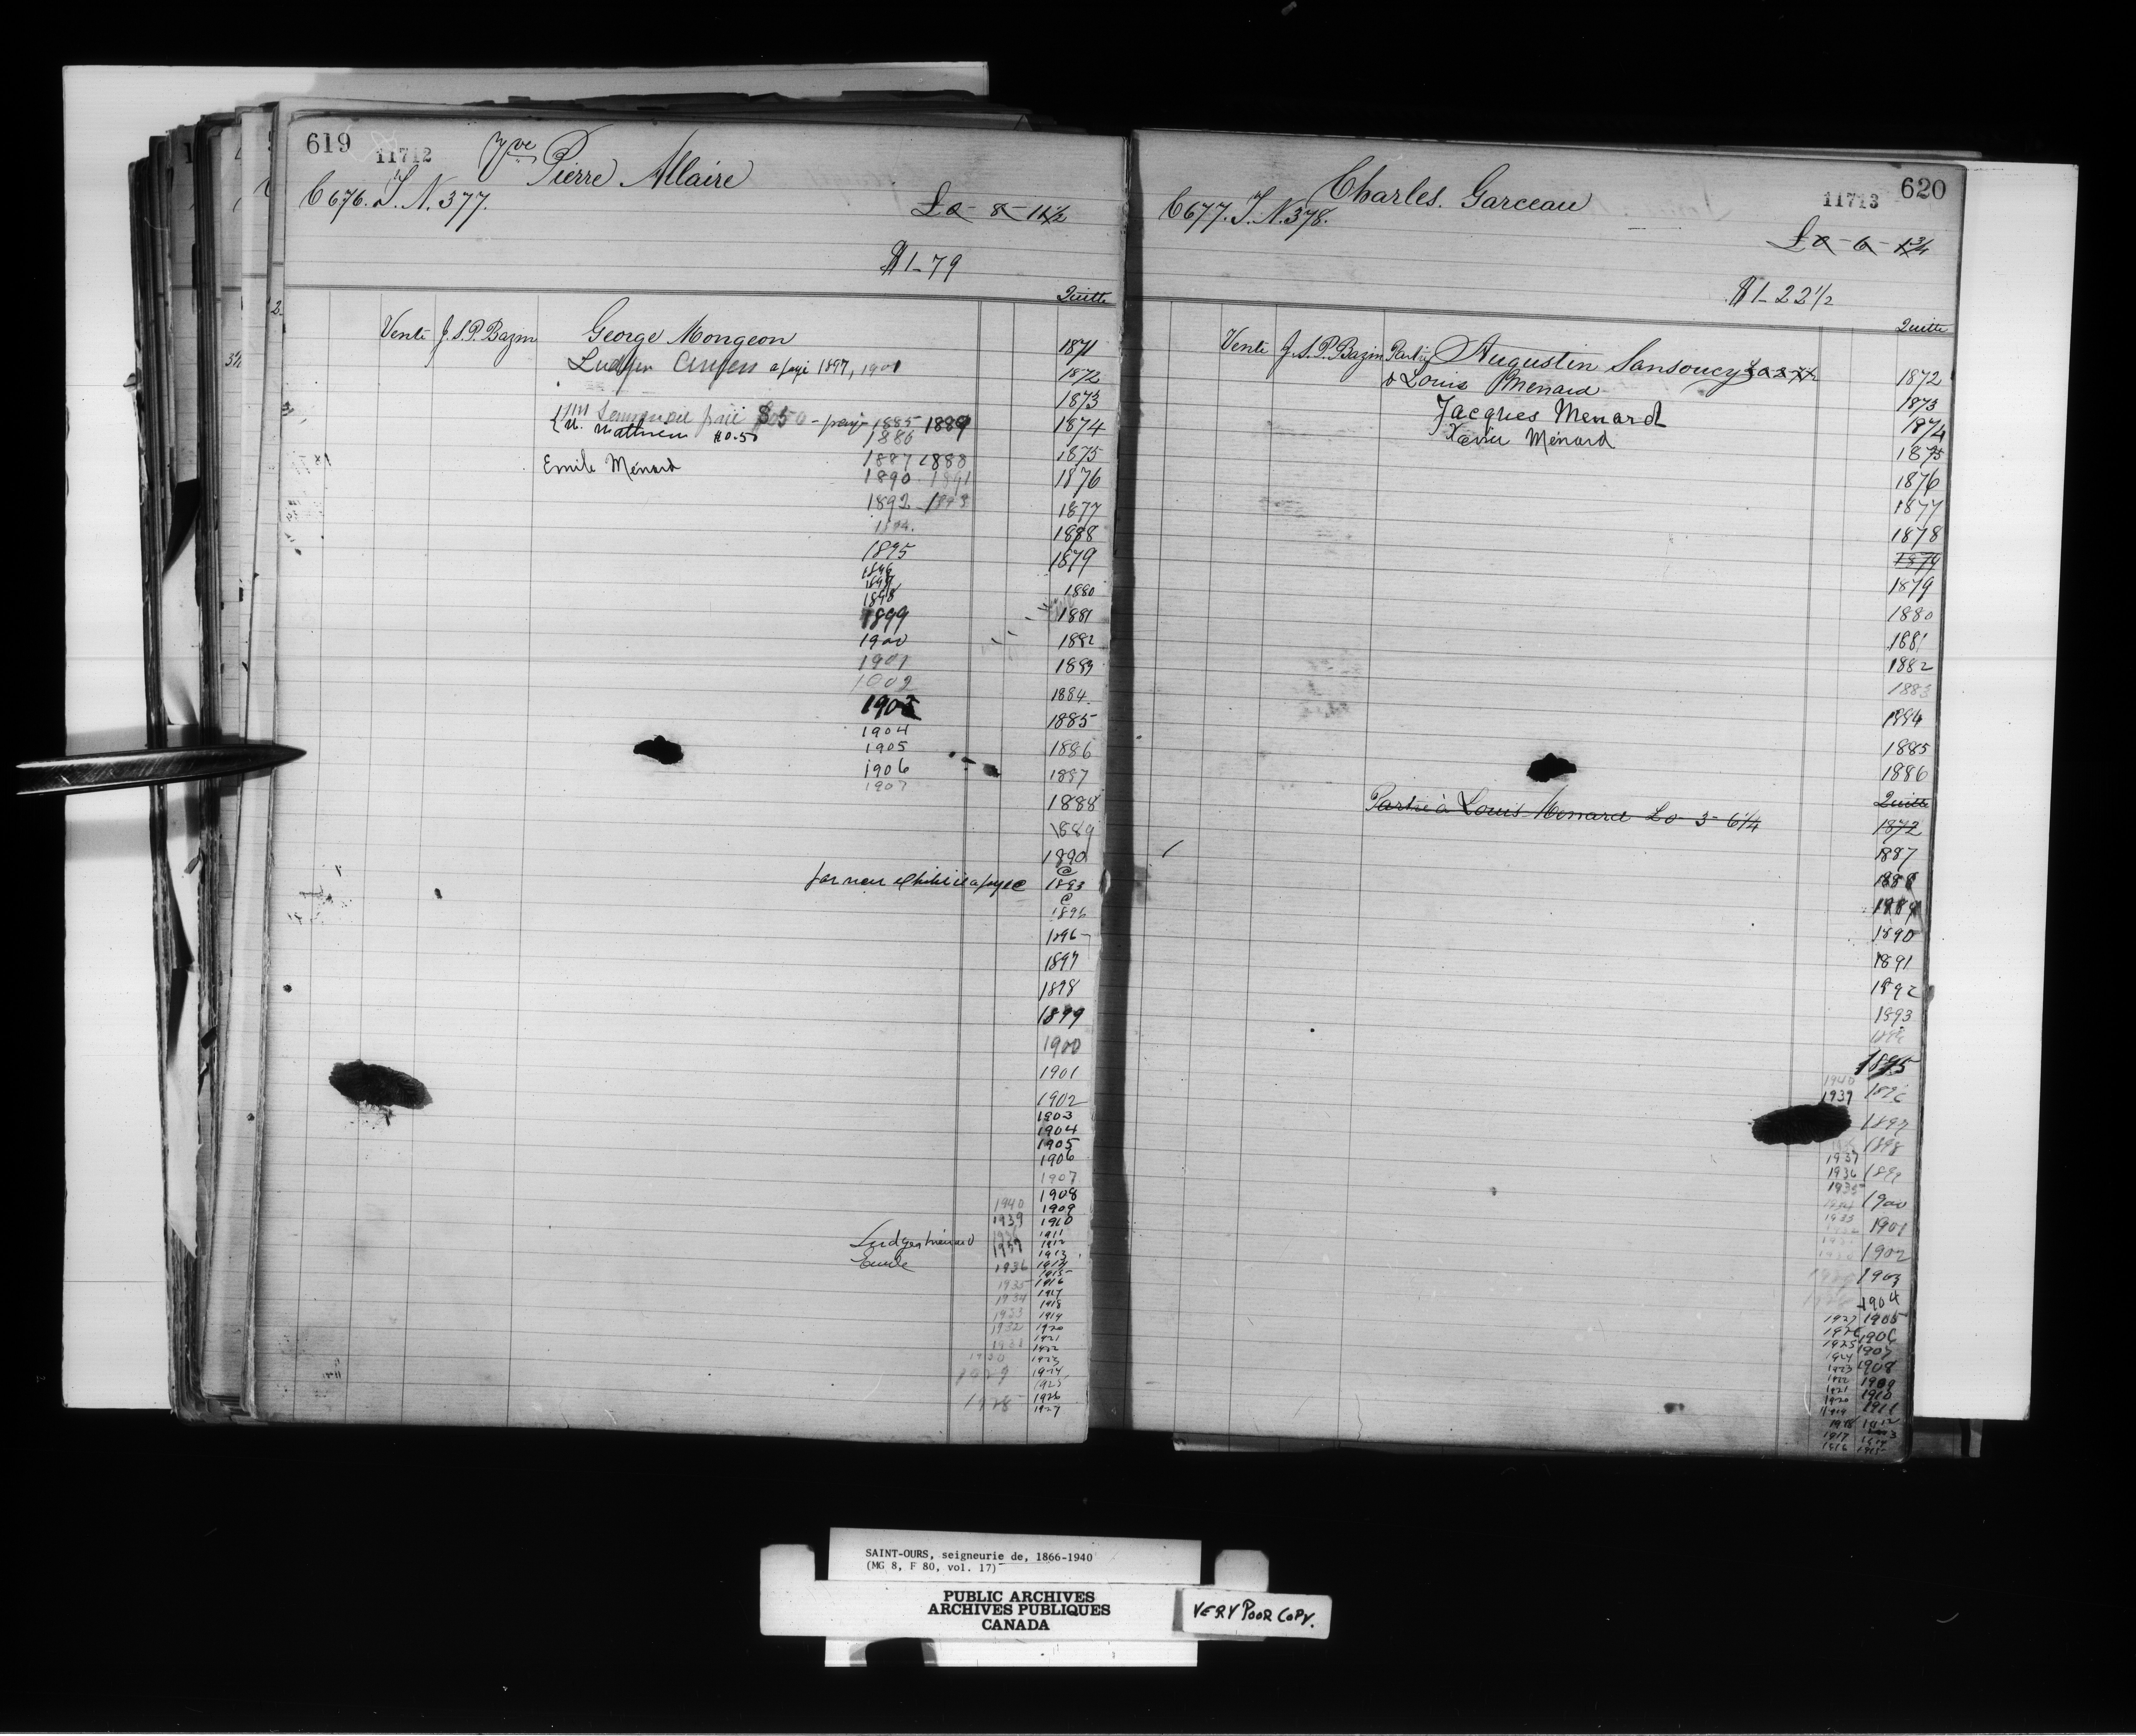 619
11712
Vve Pierre Allaire
C 676. T. N. 377.
£0- 8- 11½
$1-79
Quitte
Vente J.S.P. Bazin George Mongeon
Ludger a payé 1897, 1901
$0.50 - payé 1885 1889
Mathieu $0.50 1886
Emile Ménard 1887 1888
1890 1891
1892 1893
1894.
1895
1896
1897
1898
1899
1900
1901
1902
1903
1904
1905
1906
1907
1871
1872
1873
1874
1875
1876
1877
1878
1879
1880
1881
1882
1883
1884
1885
1886
1887
1888
1889
1890
@
1893
@
1896
1897
1898
1899
1900
1901
1902
1903
1904
1905
1906
1907
1908
1940 1909
1939 1910
Ludger Ménard 1911
1937 1912
Emile 1913
1936 1914
1915
1935 1916
1934 1917
1918
1933 1919
1932 1920
1931 1921
1922
1930 1923
1929 1924
1925
1928 1926
1927
620
11713
Charles Garceau
C 677. T. N. 378.
£0- 6- 1¾
$1-22½
Quitte
Vente J.S.P. Bazin Partie Augustin Sansoucy
& Louis Menard
Jacques Menard
Xavier Ménard
1872
1873
1874
1875
1876
1877
1878
1879
1879
1880
1881
1882
1883
1884
1885
1886
Partie à Louis Menard £0- 3- 6¼
Quitte
1872
1887
1888
1889
1890
1891
1892
1893
1894
1895
1940
1939 1896
1897
1898
1937
1936 1899
1935
1934 1900
1933
1901
1902
1903
1904
1927 1905
1926 1906
1925 1907
1924 1908
1923
1922 1909
1921 1910
1920
1919 1911
1918 1912
1917 1913
1916 1914
1915
SAINT-OURS, seigneurie de, 1866-1940
(MG 8, F 80, vol. 17)
PUBLIC ARCHIVES
ARCHIVES PUBLIQUES
CANADA
VERY POOR COPY.